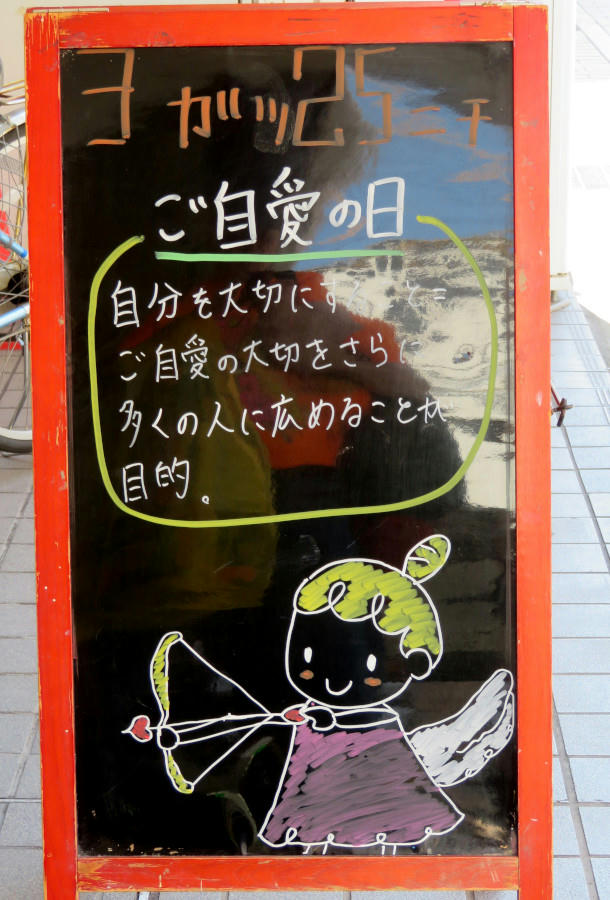 3ガツ25ニチ
ご自愛の日
自分を大切にすること=
ご自愛の大切をさらに
多くの人に広めることが
目的。